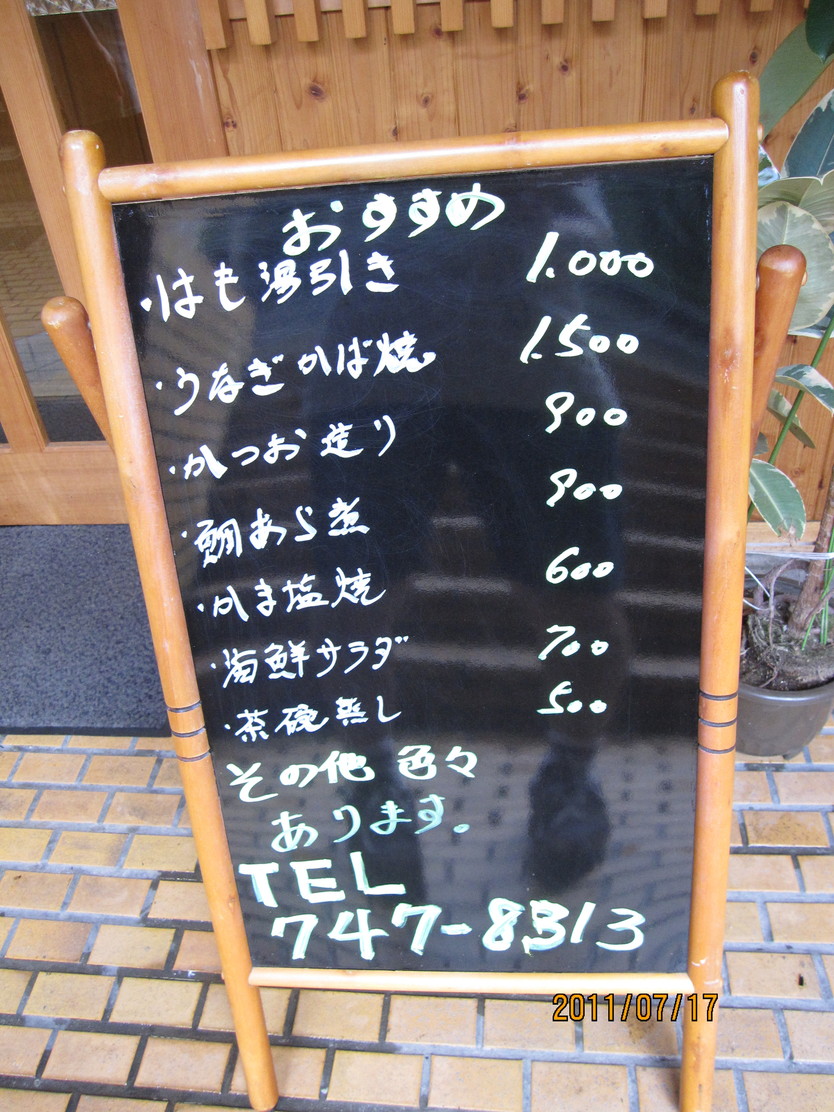 おすすめ
・はも湯引き 1.000
・うなぎかば焼 1.500
・かつお造り 900
・鯛あら煮 900
・かま塩焼 600
・海鮮サラダ 700
・茶碗蒸し 500
その他 色々
あります。
TEL
747-8313
2011/07/17